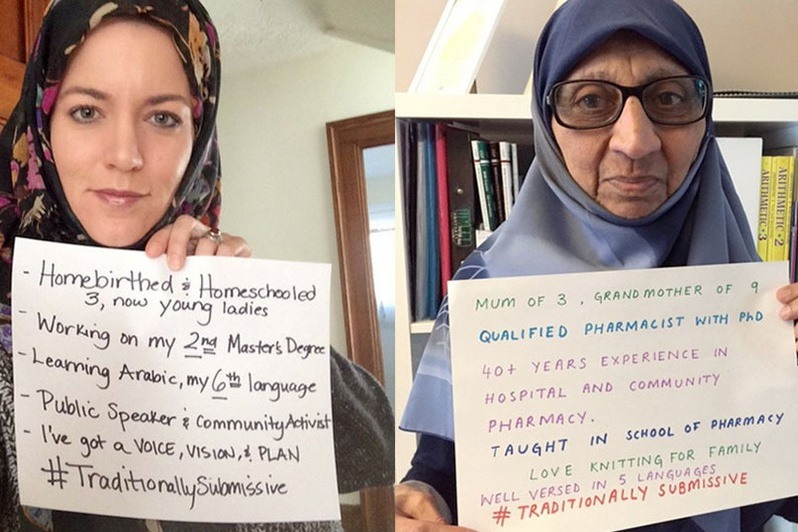 - Homebirthed & Homeschooled
3, now young
ladies
- Working on my 2nd Master's Degree
- Learning Arabic, my 6th language
- Public Speaker & Community Activist
- I've got a VOICE, VISION, & PLAN
#TraditionallySubmissive
MUM OF 3, GRANDMOTHER OF 9
QUALIFIED PHARMACIST WITH PhD
40+ YEARS EXPERIENCE IN
HOSPITAL AND COMMUNITY
PHARMACY.
TAUGHT IN SCHOOL OF PHARMACY
LOVE KNITTING FOR FAMILY
WELL VERSED IN 5 LANGUAGES
# TRADITIONALLY SUBMISSIVE
ARITHMETIC·3
ARITHMETIC·2